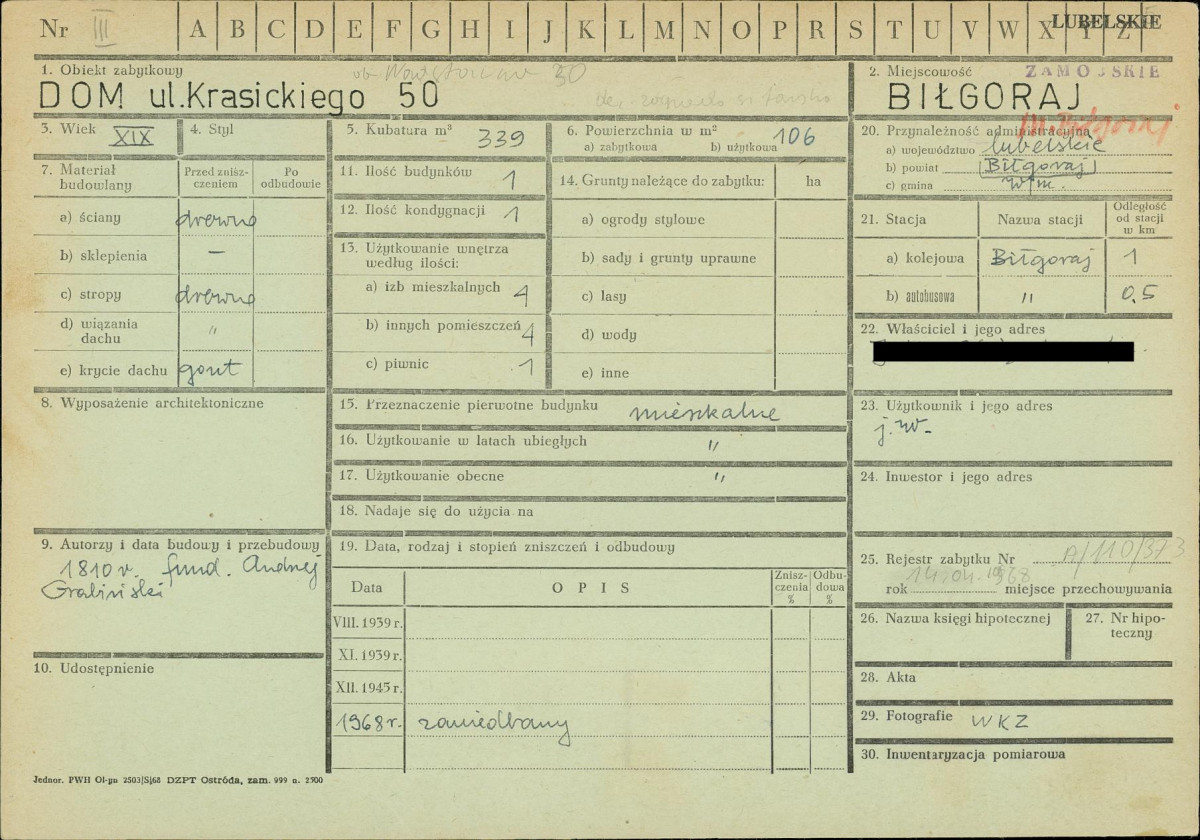 Nr III A B C D E F G H I J K L M N O P R S T U V W X Y Z LUBELSKIE
1. Obiekt zabytkowy
DOM ul. Krasickiego 50
30
2. Miejscowość ZAMOJSKIE
BIŁGORAJ
m. Biłgoraj
3. Wiek XIX
4. Styl
5. Kubatura m³ 339
6. Powierzchnia w m²
a) zabytkowa b) użytkowa 106
20. Przynależność administracyjna
a) województwo lubelskie
b) powiat Biłgoraj
c) gmina w/m.
7. Materiał budowlany
Przed zniszczeniem
Po odbudowie
a) ściany drewno
b) sklepienia –
c) stropy drewno
d) wiązania dachu "
e) krycie dachu gont
11. Ilość budynków 1
12. Ilość kondygnacji 1
13. Użytkowanie wnętrza
według ilości:
a) izb mieszkalnych 4
b) innych pomieszczeń 4
c) piwnic 1
14. Grunty należące do zabytku: ha
a) ogrody stylowe
b) sady i grunty uprawne
c) lasy
d) wody
e) inne
21. Stacja
Nazwa stacji
Odległość
od stacji
w km
a) kolejowa Biłgoraj 1
b) autobusowa " 0,5
22. Właściciel i jego adres
8. Wyposażenie architektoniczne
15. Przeznaczenie pierwotne budynku mieszkalne
16. Użytkowanie w latach ubiegłych "
17. Użytkowanie obecne "
18. Nadaje się do użycia na
23. Użytkownik i jego adres
j.w.
24. Inwestor i jego adres
9. Autorzy i data budowy i przebudowy
1810 r. fund. Andrzej
Graliński
10. Udostępnienie
19. Data, rodzaj i stopień zniszczeń i odbudowy
Data
OPIS
Zniszczenia %
Odbudowa %
VIII. 1939 r.
XI. 1939 r.
XII. 1945 r.
1968 r. zaniedbany
25. Rejestr zabytku Nr A/110/373
14.04.1968
rok miejsce przechowywania
26. Nazwa księgi hipotecznej
27. Nr hipoteczny
28. Akta
29. Fotografie WKZ
30. Inwentaryzacja pomiarowa
Jednor. PWH Ol-yn 2503/S/68 DZPT Ostróda, zam. 999 n. 2500